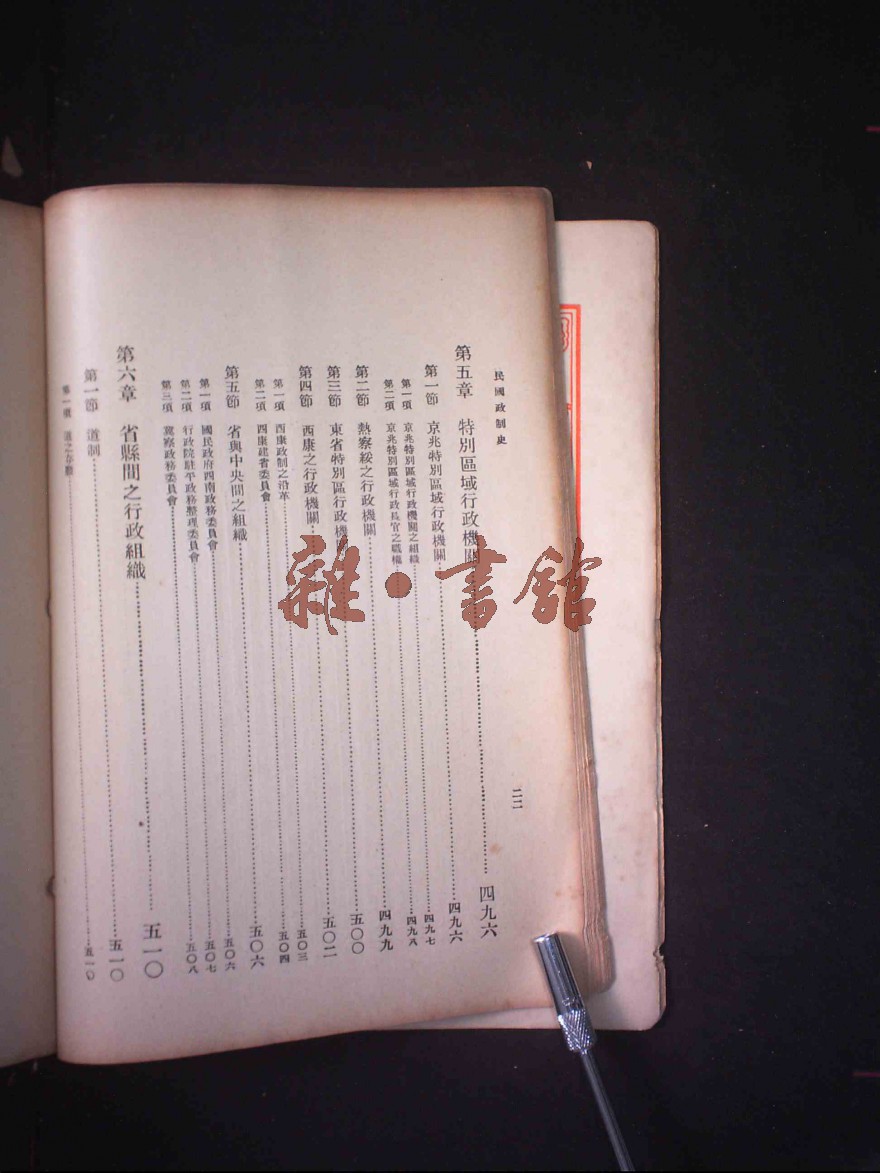 民國政制史 二二
第五章 特別區域行政機關……四九六
第一節 京兆特別區域行政機關……四九六
第一項 京兆特別區域行政機關之組織……四九七
第二項 京兆特別區域行政長官之職權……四九八
第二節 熱察綏之行政機關……四九九
第三節 東省特別區行政機關……五〇〇
第四節 西康之行政機關……五〇二
第一項 西康政制之沿革……五〇三
第二項 西康建省委員會……五〇四
第五節 省與中央間之組織……五〇六
第一項 國民政府西南政務委員會……五〇六
第二項 行政院駐平政務整理委員會……五〇七
第三項 冀察政務委員會……五〇八
第六章 省縣間之行政組織……五一〇
第一節 道制……五一〇
第一項 道之存廢……五一〇
雜·書館